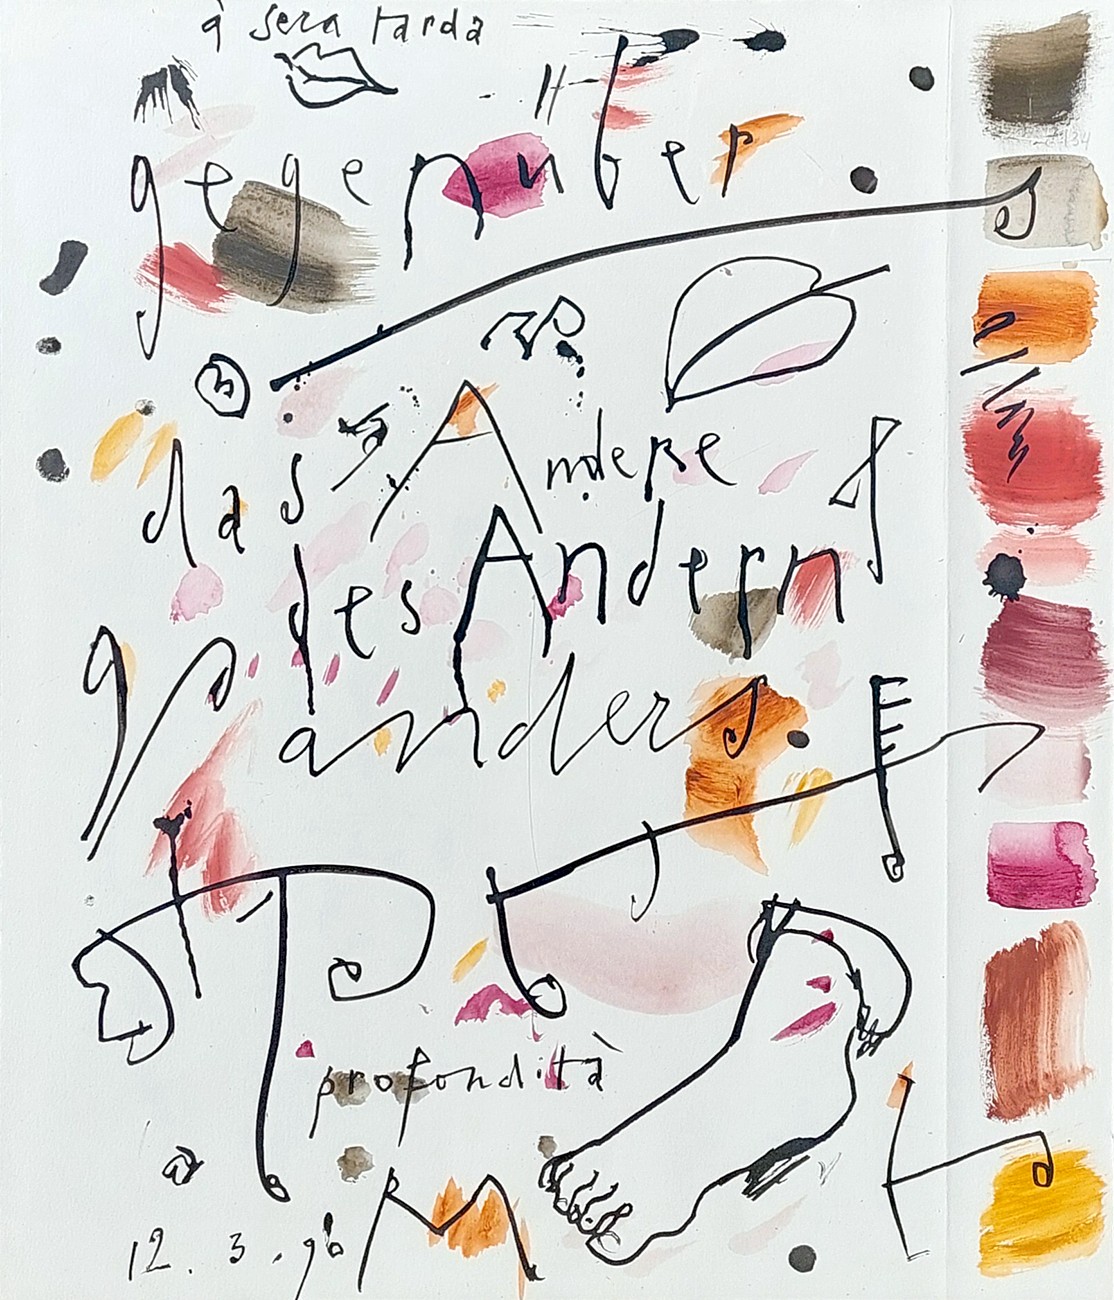 à sera tarda
gegenüber.
das Andere
des Andern
anders.
profondità
12. 3. 96